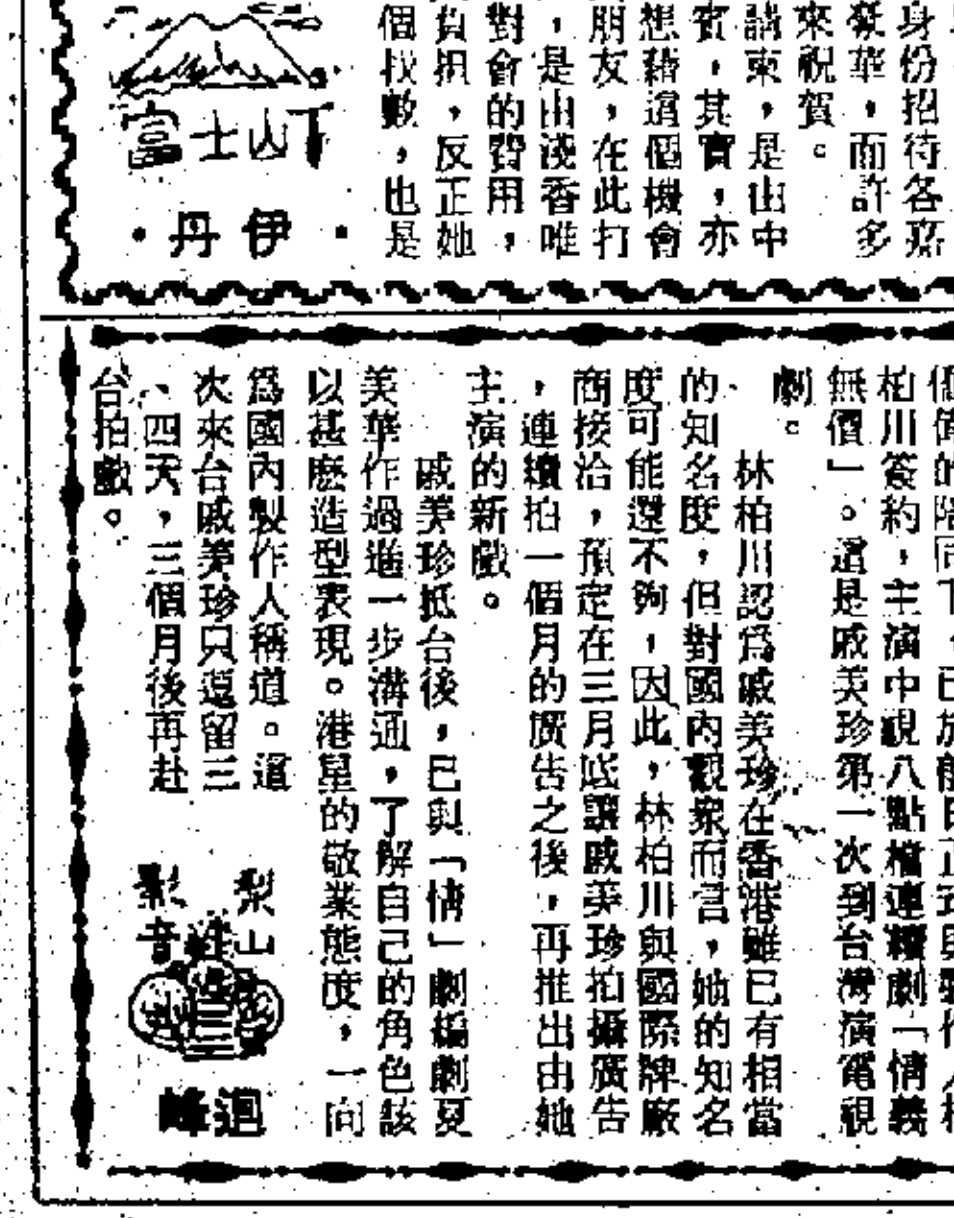 身份招待各嘉
豪華，而許多
來祝賀。
請柬，是由中
賓，其實，亦
想藉這個機會
朋友，在此打
，是由淺香唯
對會的費用，
負担，反正她
個找數，也是
富士山下
·丹伊·
的陪同下，已於前日正式與製作人
柏川簽約，主演中視八點檔連續劇「情義
無價」。這是戚美珍第一次到台灣演電視
劇。
林柏川認爲戚美珍在香港雖已有相當
的知名度，但對國內觀衆而言，她的知名
度可能還不夠，因此，林柏川與國際牌廠
商接洽，預定在三月底讓戚美珍拍攝廣告
，連續拍一個月的廣告之後，再推出由她
主演的新戲。
戚美珍抵台後，已與「情」劇編劇夏
美華作過進一步溝通，了解自己的角色該
以甚麽造型表現。港星的敬業態度，一向
爲國內製作人稱道。這
次來台戚美珍只逗留三
、四天，三個月後再赴
台拍戲。
梨山
影音
峰迴